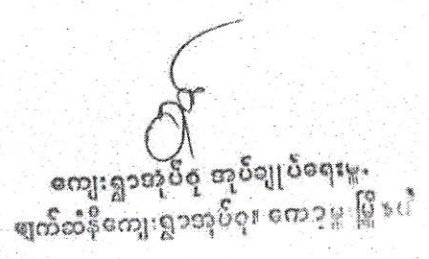 ကျေးရွာအုပ်စု အုပ်ချုပ်ရေးမှူး
ဈက်ဆံနီကျေးရွာအုပ်စု၊ ကော့မှူးမြို့နယ်